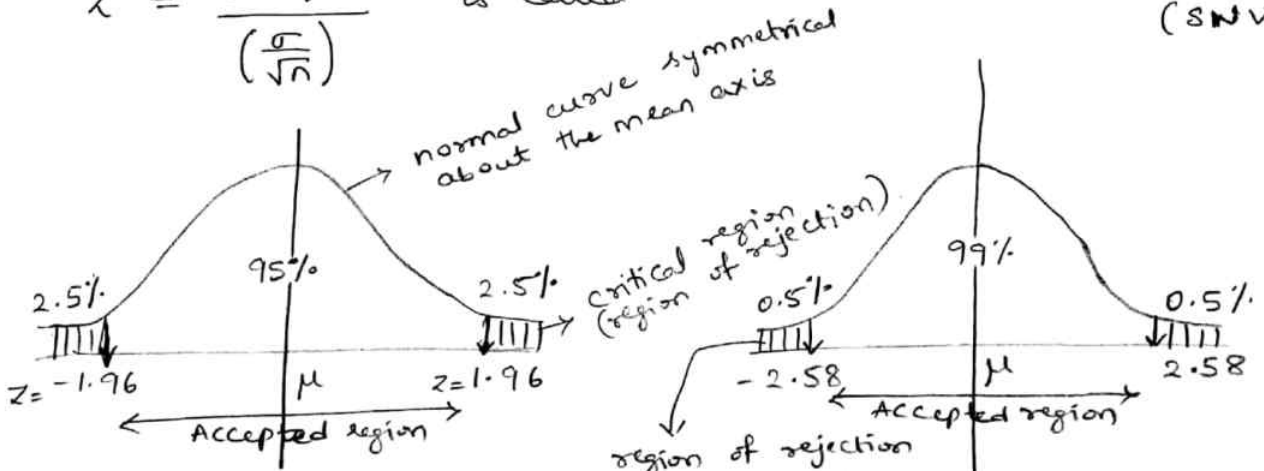 z = is
(σ/√n)
(SNV
normal curve symmetrical
about the mean axis
critical region
(region of rejection).
2.5% 95% 2.5%
z= -1.96 μ z=1.96
Accepted region
0.5% 99% 0.5%
-2.58 μ 2.58
Accepted region
region of rejection